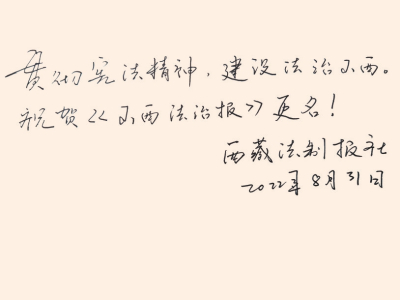 贯彻宪法精神，建设法治江西。
祝贺《江西法治报》更名！
西藏法制报社
2022年8月31日